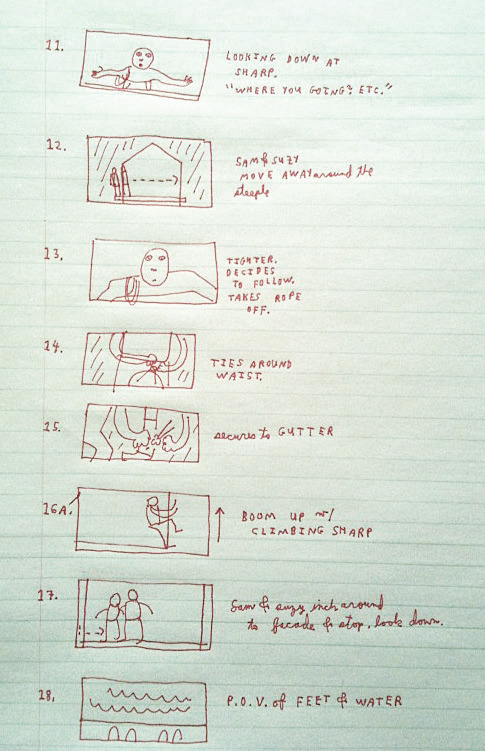 11. LOOKING DOWN AT
SHARP.
"WHERE YOU GOING? ETC."
12. SAM & SUZY
MOVE AWAY around the
steeple
13. TIGHTER.
DECIDES
TO FOLLOW.
TAKES ROPE
OFF.
14. TIES AROUND
WAIST.
15. secures to GUTTER
16A. BOOM UP w/
CLIMBING SHARP
17. Sam & suzy inch around
to facade & stop, look down.
18. P.O.V. of FEET & WATER